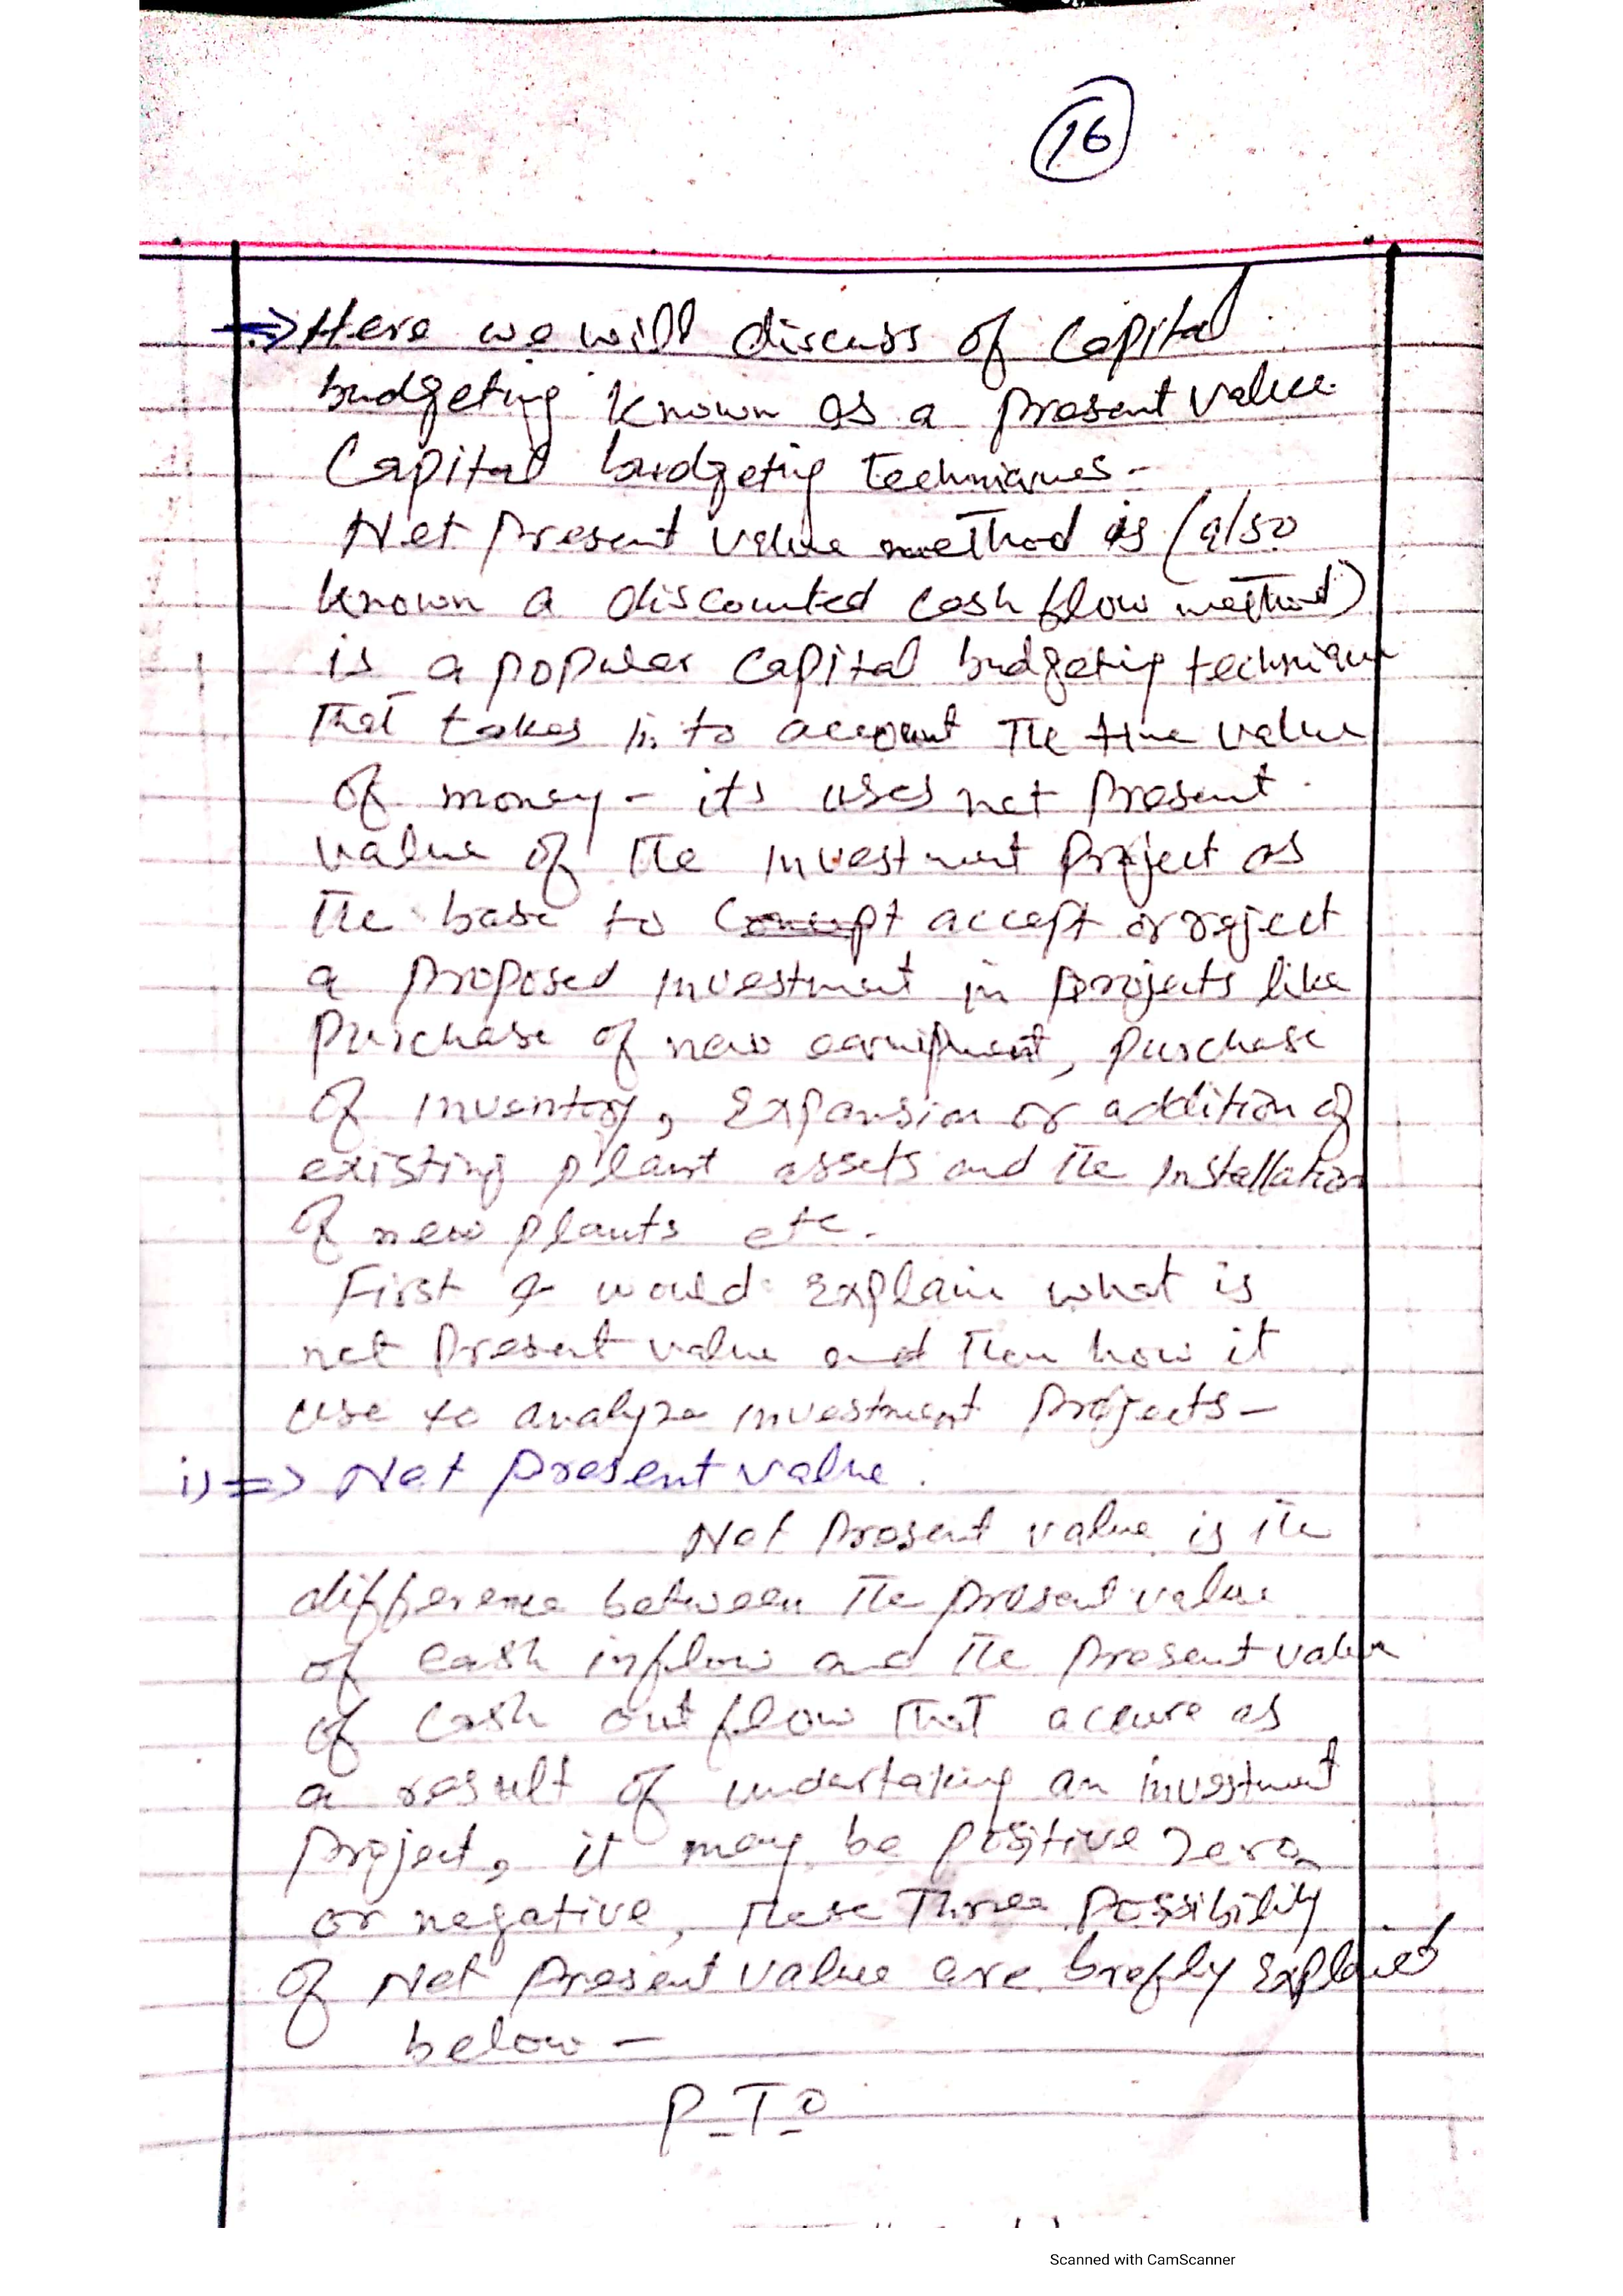 16
⇒ Here we will discuss of Capital
budgeting known as a present value
Capital budgeting techniques -
Net present value method is (also
known a discounted cash flow method)
is a popular capital budgeting technique
that takes in to account the time value
of money - its uses net present
value of the investment project as
the base to accept or reject
a proposed investment in projects like
purchase of new equipment, purchase
of inventory, Expansion or addition of
existing plant assets and the installation
of new plants etc.
First I would explain what is
net present value and then how it
use to analyze investment projects -
i) ⇒ Net present value.
Net present value is the
difference between the present value
of cash inflow and the present value
of cash out flow that accure as
a result of undertaking an investment
project, it may be positive zero
or negative, these three possibility
of Net present value are brefly explained
below -
P.T.O
Scanned with CamScanner